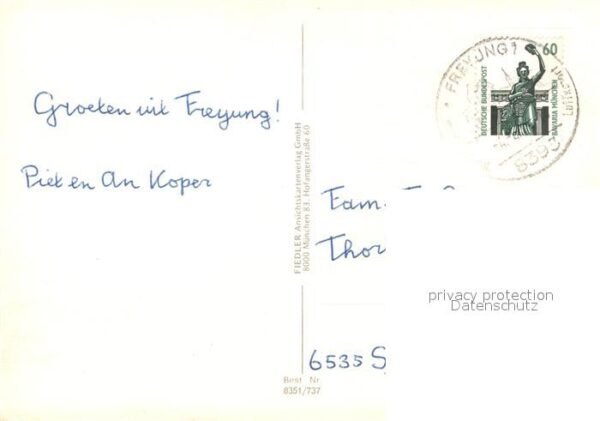 Groeten uit Freyung!
Piet en An Koper
FIEDLER Ansichtskartenverlag GmbH
8000 München 83, Hofangerstraße 60
Best Nr
8351/737
FREYUNG 1
8393
60
DEUTSCHE BUNDESPOST
BAVARIA MÜNCHEN
Fam.
Thor
6535 S
privacy protection
Datenschutz